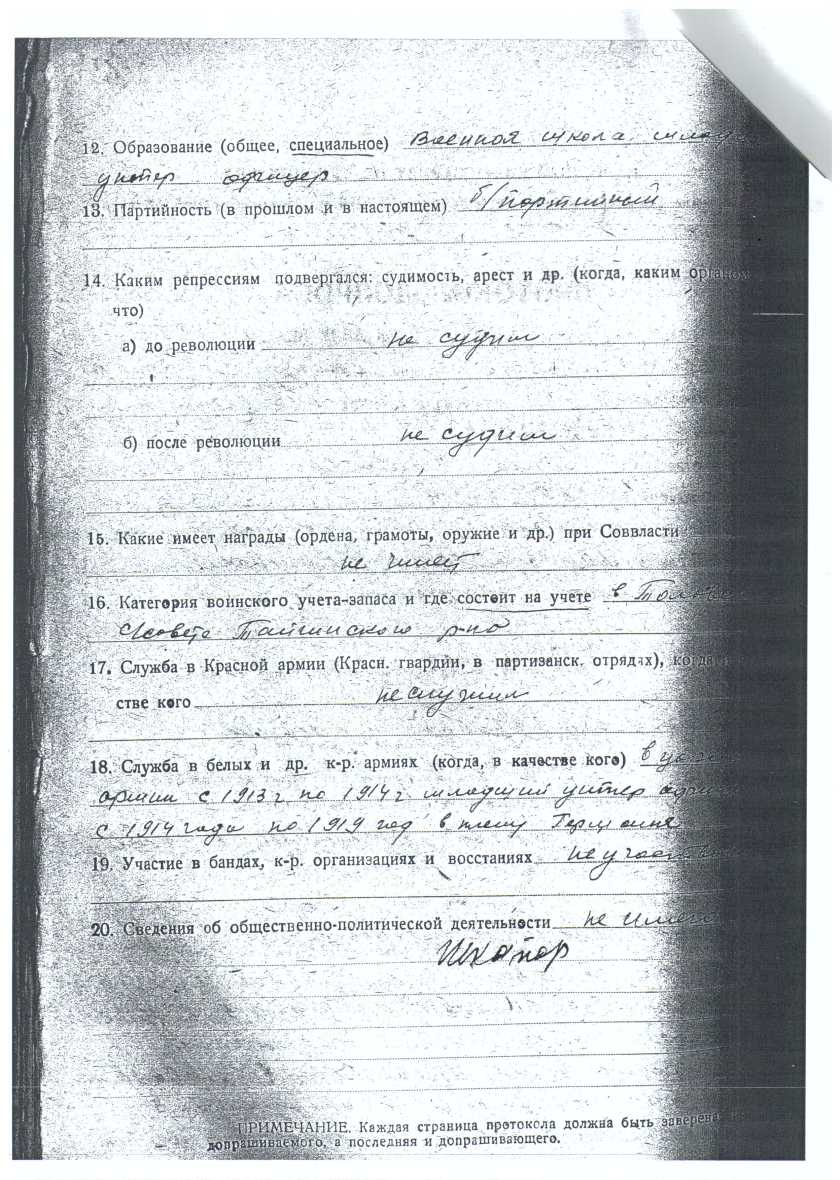 12. Образование (общее, специальное) Военная школа
унтер офицер
13. Партийность (в прошлом и в настоящем) б/партийный
14. Каким репрессиям подвергался: судимость, арест и др. (когда, каким органом
что)
а) до революции не судим
б) после революции не судим
15. Какие имеет награды (ордена, грамоты, оружие и др.) при Соввласти
не имеет
16. Категория воинского учета-запаса и где состоит на учете в
с/совете Тайгинского р-но
17. Служба в Красной армии (Красн. гвардии, в партизанск. отрядах), когда
стве кого не служил
18. Служба в белых и др. к-р. армиях (когда, в качестве кого) в
армии с 1913 г по 1914 г младший унтер
с 1914 года по 1919 год в плену Германия
19. Участие в бандах, к-р. организациях и восстаниях не
20. Сведения об общественно-политической деятельности не
ПРИМЕЧАНИЕ. Каждая страница протокола должна быть заверена
допрашиваемого, а последняя и допрашивающего.